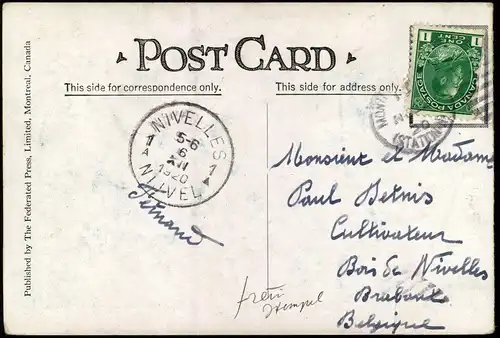 POST CARD
This side for correspondence only.
This side for address only.
Published by The Federated Press, Limited, Montreal, Canada
1 ONE CENT 1
CANADA POSTAGE
NIVELLES
1 5-6 1
6
XII
1920
NIVEL
Fernand
Monsieur et Madame
Paul
Cultivateur
Bois de Nivelles
Brabant
Belgique
Stempel